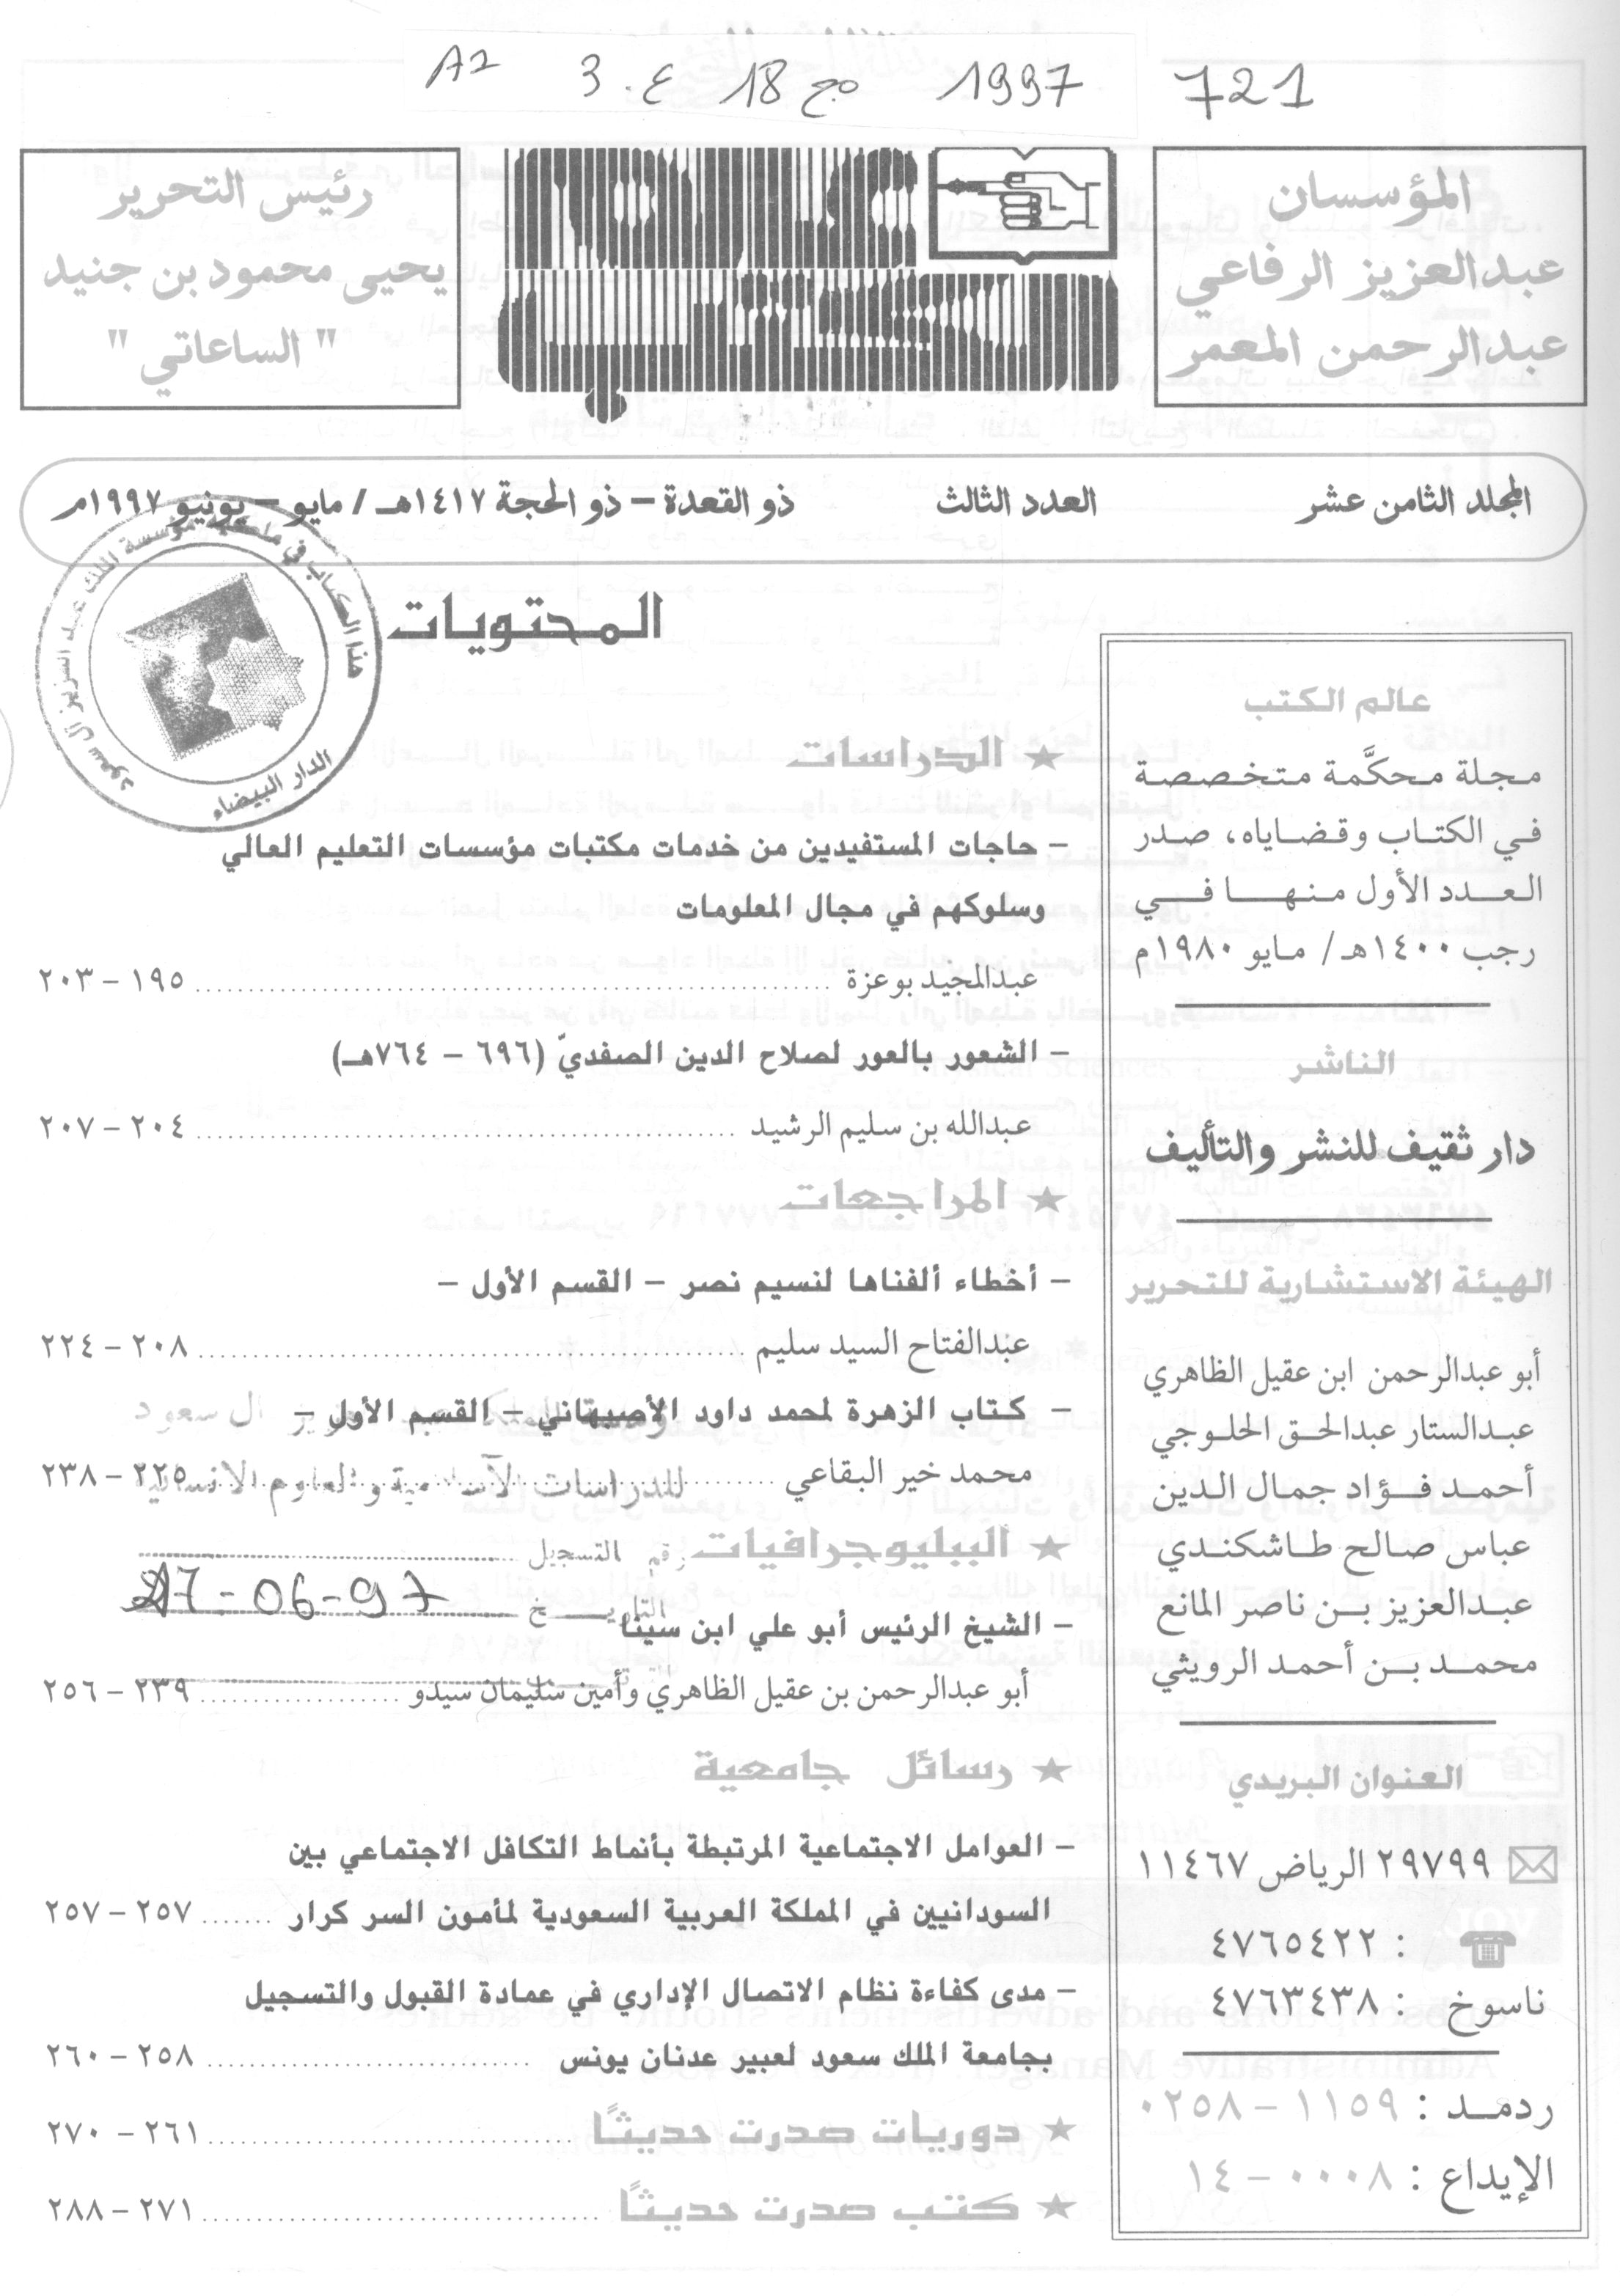 721 1997 مج 18 ع. 3 A2
المؤسسان
عبدالعزيز الرفاعي
عبدالرحمن المعمر
عالم الكتب
رئيس التحرير
يحيى محمود بن جنيد
" الساعاتي "
المجلد الثامن عشر العدد الثالث ذو القعدة – ذو الحجة ١٤١٧هـ / مايو – يونيو ١٩٩٧م
هذا الكتاب في ملك مؤسسة الملك عبد العزيز آل سعود
الدار البيضاء
عالم الكتب
مجلة محكَّمة متخصصة
في الكتاب وقضاياه، صدر
العدد الأول منها في
رجب ١٤٠٠هـ / مايو ١٩٨٠م
الناشر
دار ثقيف للنشر والتأليف
الهيئة الاستشارية للتحرير
أبو عبدالرحمن ابن عقيل الظاهري
عبدالستار عبدالحق الحلوجي
أحمد فؤاد جمال الدين
عباس صالح طاشكندي
عبدالعزيز بن ناصر المانع
محمد بن أحمد الرويثي
العنوان البريدي
٢٩٧٩٩ الرياض ١١٤٦٧
: ٤٧٦٥٤٢٢
ناسوخ : ٤٧٦٣٤٣٨
ردمد : ١١٥٩ – ٠٢٥٨
الإيداع : ٠٠٠٨ – ١٤
المحتويات
★ الدراسات
– حاجات المستفيدين من خدمات مكتبات مؤسسات التعليم العالي
وسلوكهم في مجال المعلومات
عبدالمجيد بوعزة ........ ١٩٥ – ٢٠٣
– الشعور بالعور لصلاح الدين الصفديّ (٦٩٦ – ٧٦٤هـ)
عبدالله بن سليم الرشيد ........ ٢٠٤ – ٢٠٧
★ المراجعات
– أخطاء ألفناها لنسيم نصر – القسم الأول –
عبدالفتاح السيد سليم ........ ٢٠٨ – ٢٢٤
– كتاب الزهرة لمحمد داود الأصبهاني – القسم الأول –
آل سعود
محمد خير البقاعي ........ ٢٢٥ – ٢٣٨
للدراسات الاسلامية والعلوم الانسانية
★ الببليوجرافيات
رقم التسجيل
التاريخ 27-06-97
– الشيخ الرئيس أبو علي ابن سينا
أبو عبدالرحمن بن عقيل الظاهري وأمين سليمان سيدو ........ ٢٣٩ – ٢٥٦
★ رسائل جامعية
– العوامل الاجتماعية المرتبطة بأنماط التكافل الاجتماعي بين
السودانيين في المملكة العربية السعودية لمأمون السر كرار ....... ٢٥٧ – ٢٥٧
– مدى كفاءة نظام الاتصال الإداري في عمادة القبول والتسجيل
بجامعة الملك سعود لعبير عدنان يونس ........ ٢٥٨ – ٢٦٠
★ دوريات صدرت حديثًا ........ ٢٦١ – ٢٧٠
★ كتب صدرت حديثًا ........ ٢٧١ – ٢٨٨